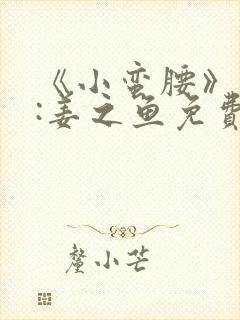 《小蛮腰》
:姜之鱼免費
釐小芒